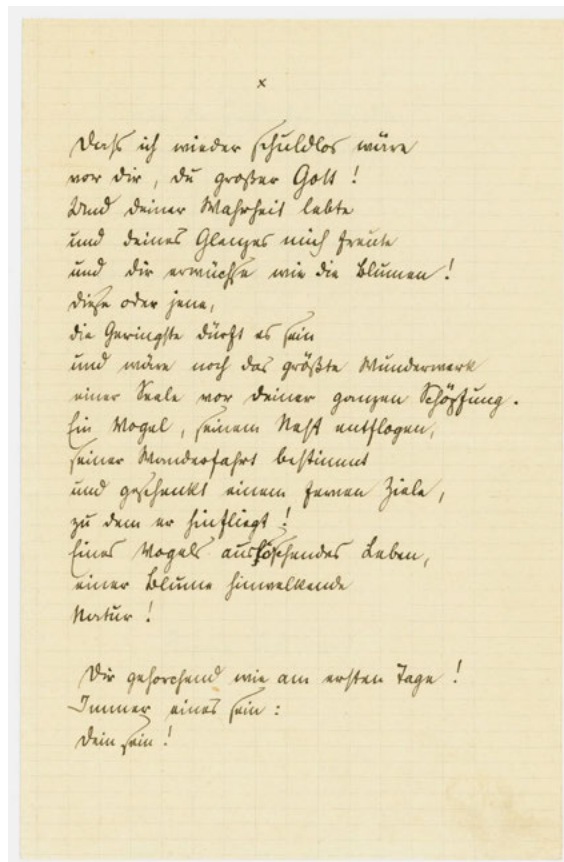 x
Dass ich wieder schuldlos wäre
vor dir, du großer Gott!
Und deiner Wahrheit lebte
und deines Glanzes mich freute
und dir erwüchse wie die Blumen!
diese oder jene,
die Geringste dürft es sein
und wäre noch das größte Wunderwerk
einer Seele vor deiner ganzen Schöpfung.
Ein Vogel, seinem Nest entflogen,
seiner Wanderfahrt bestimmt
und geschenkt einem fernen Ziele,
zu dem er hinfliegt!
Eines Vogels auslöschendes Leben,
einer Blume hinwelkende
Natur!
Dir gehorchend wie am ersten Tage!
Immer eines sein:
dein sein!